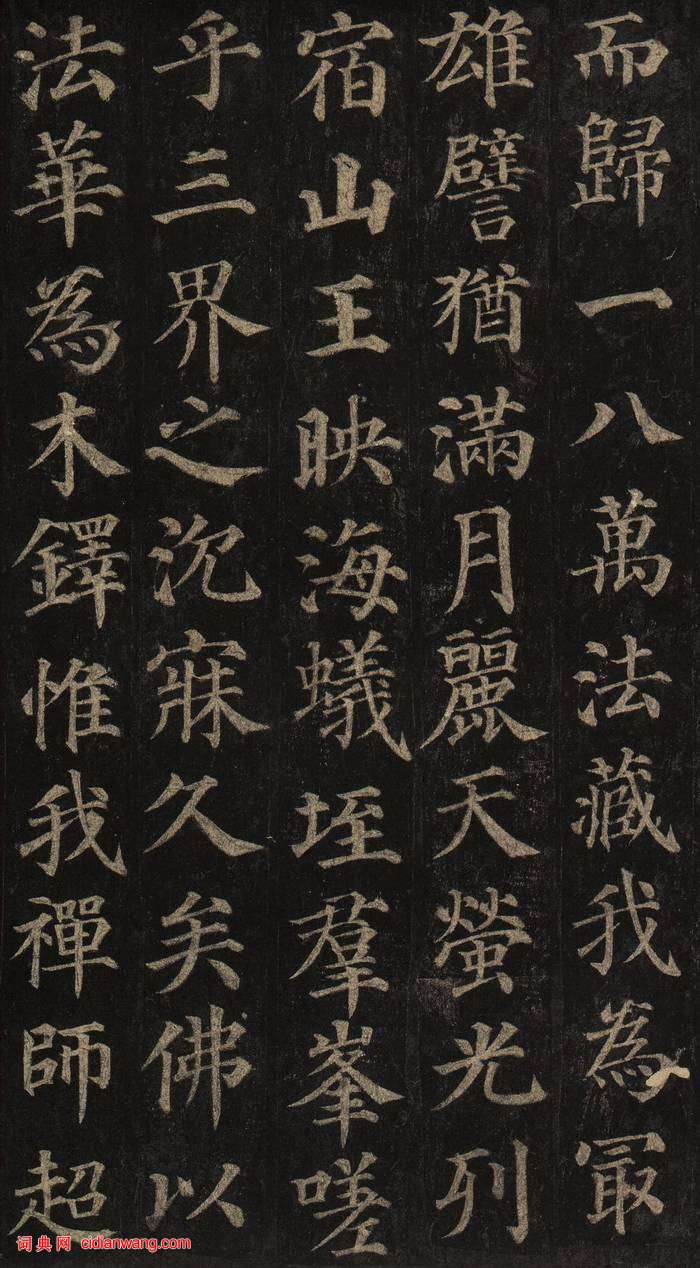 而歸一八萬法藏我為冣
雄譬猶滿月麗天螢光列
宿山王映海蟻垤羣峯嗟
乎三界之沉寐久矣佛以
法華為木鐸惟我禪師超
词典网 cidianwang.com